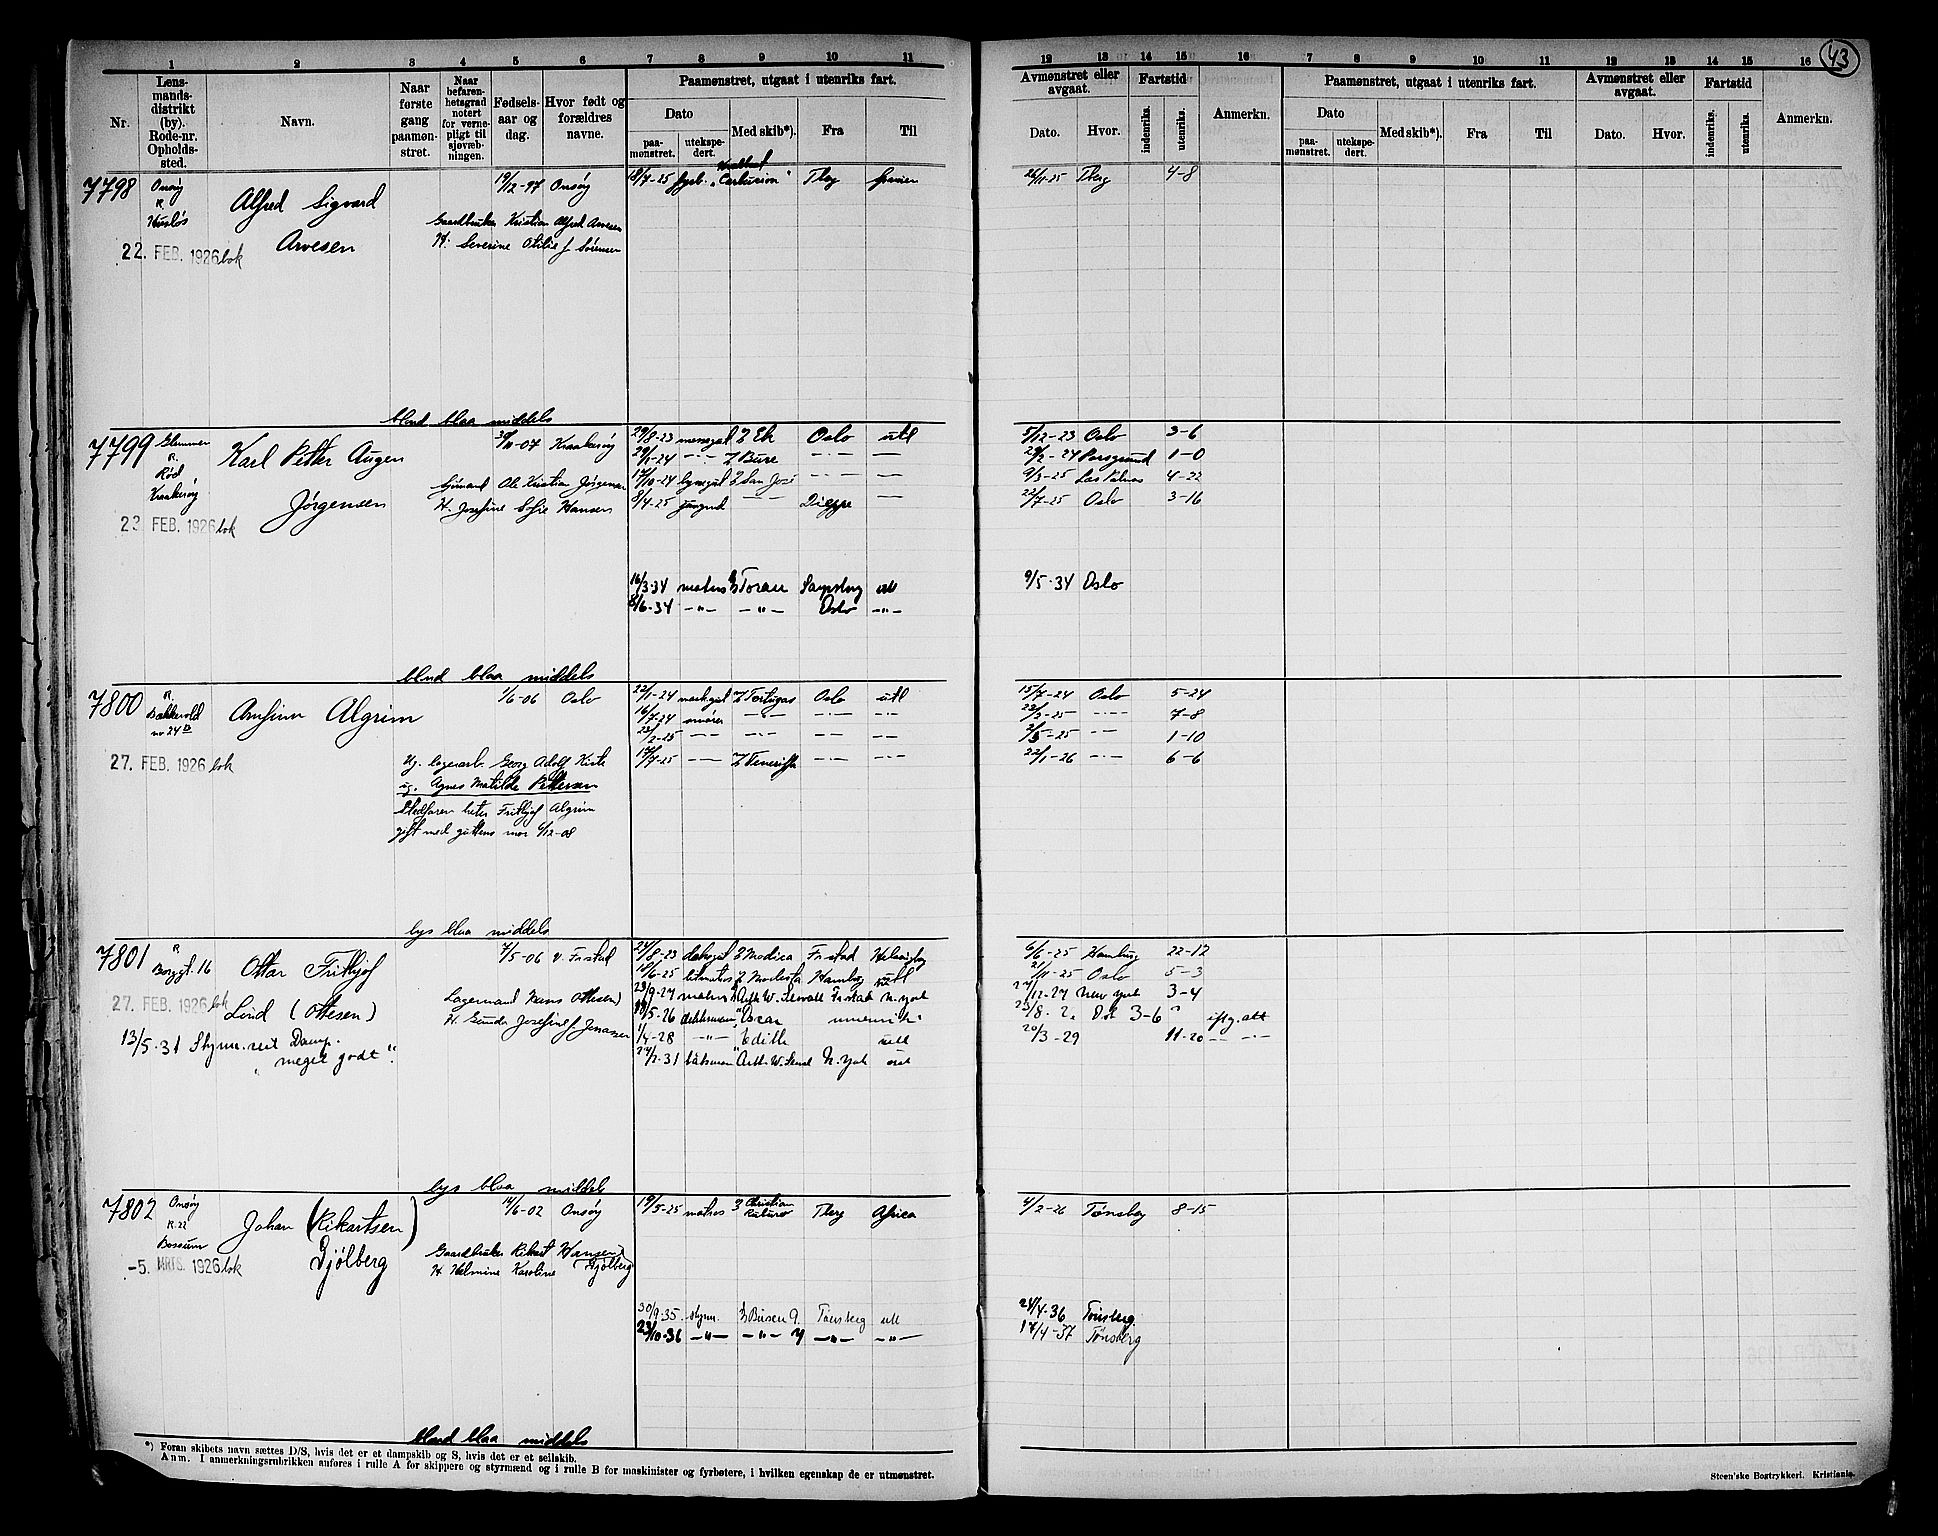 43
1 2 3 4 5 6 7 8 9 10 11
12 13 14 15 16 7 8 9 10 11 12 13 14 15 16
Nr.
Lens-
mands-
distrikt
(by).
Rode-nr.
Opholds-
sted.
Navn.
Naar
første
gang
paamøn-
stret.
Naar
befaren-
hetsgrad
notert
for verne-
pligt til
sjøvæb-
ningen.
Fødsels-
aar og
dag.
Hvor født og
forældres
navne.
Paamønstret, utgaat i utenriks fart.
Dato
paa-
mønstret.
utekspe-
dert.
Med skib*).
Fra
Til
Avmønstret eller
avgaat.
Dato.
Hvor.
Fartstid
indenriks.
utenriks.
Anmerkn.
Paamønstret, utgaat i utenriks fart.
Dato
paa-
mønstret.
utekspe-
dert.
Med skib*).
Fra
Til
Avmønstret eller
avgaat.
Dato.
Hvor.
Fartstid
indenriks.
utenriks.
Anmerkn.
7798 Onsøy R. Huslös
Alfred Sigvard
Arvesen
22. FEB. 1926 bok
19/12-97 Onsøy
Gaardbruker Kristian Alfred Arvesen
H. Severine Otilie f Sörensen
18/7-25 fyrb. "Centurion" Tbrg
26/11-25 Tbrg 4-8
blond blaa middels
7799 Glemmen R. Rød Kraakerøy
Karl Petter Augen
Jørgensen
23. FEB. 1926 bok
30/11-07 Kraakerøy
Sjømand Ole Kristian Jørgensen
H. Josefine Sofie Hansen
29/8-23 messegut D Ek Oslo utl
5/12-23 Oslo 3-6
29/1-24 -"- D Bure -"- -"-
29/2-24 Porsgrund 1-0
17/10-24 byssegut D San José -"- -"-
9/3-25 Las Palmas 4-22
8/4-25 jungmd -"- Dieppe -"-
22/7-25 Oslo 3-16
16/3-34 matros Toran Sarpsborg utl
9/5-34 Oslo
8/6-34 -"- -"- Oslo -"-
blond blaa middels
7800 R. Bakkevold nr 24 D
Arnfinn Algrim
27. FEB. 1926 bok
1/6-06 Oslo
Ug. lagerarb. Georg Adolf
ug. Agnes Matilde Pettersen
Stedfaren heter Frithjof Algrim
gift med guttens mor 6/12-08
22/1-24 D Tortugas Oslo utl
15/7-24 Oslo 5-24
16/7-24 smører -"- -"- -"-
23/2-25 -"- 7-8
23/2-25 -"- -"- -"- -"-
2/5-25 -"- 1-10
17/7-25 -"- D Teneriffa -"- -"-
22/1-26 -"- 6-6
lys blaa middels
7801 R Borggt. 16
Ottar Frithjof
Lind (Ottesen)
27. FEB. 1926 bok
13/5-31 Styrm. seil Damp.
"meget godt".
7/5-06 v. Fr.stad
Lagermand Hans Ottesen
H. Gunda Josefine f Jonassen
24/8-23 dæksgut D Modica Fr.stad Helsingborg
6/6-25 Hamburg 22-12
10/6-25 letmatros D Modesta Hambrg utl
21/11-25 Oslo 5-3
23/9-27 matros Arth. W. Sewall Fr.stad N.York
27/12-27 New York 3-4
18/5-26 dekksmann Oscar innenriks
23/8 3-6 iflg. att
1/4-28 -"- Edith utl
20/3-29 11-20 -"- -"-
27/2-31 båtsmann Arth. W. Sewall N.York
lys blaa middels
7802 Onsøy R. 22 Bossum
Johan (Rikartsen)
Gjölberg
-5. MRTS. 1926 bok
14/6-02 Onsøy
Gaardbruker Rikart Hansen
(Gjølberg
H. Helmine Karoline
19/5-25 matros D Christian Tbrg Africa
4/2-26 Tønsbg 8-15
30/9-35 styrm. Busen 9. Tönsberg utl
24/4-36 Tønsberg.
23/10-36 -"- -"- 7 -"- -"-
17/4-37 Tønsberg
blond blaa middels
*) Foran skibets navn sættes D/S, hvis det er et dampskib og S, hvis det er et seilskib.
Anm. I anmerkningsrubrikken anføres i rulle A for skippere og styrmænd og i rulle B for maskinister og fyrbøtere, i hvilken egenskap de er utmønstret.
Steen'ske Bogtrykkeri. Kristiania.